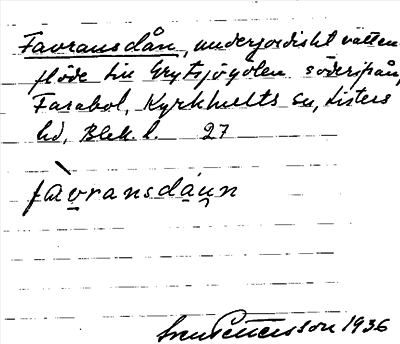 Favransdån, underjordiskt vatten-
flöde till Grytsjögölen söderifrån,
Farabol, Kyrkhults sn, Listers
hd, Blek. l. 27
fàvransdáu̯n
Sven Pettersson 1936